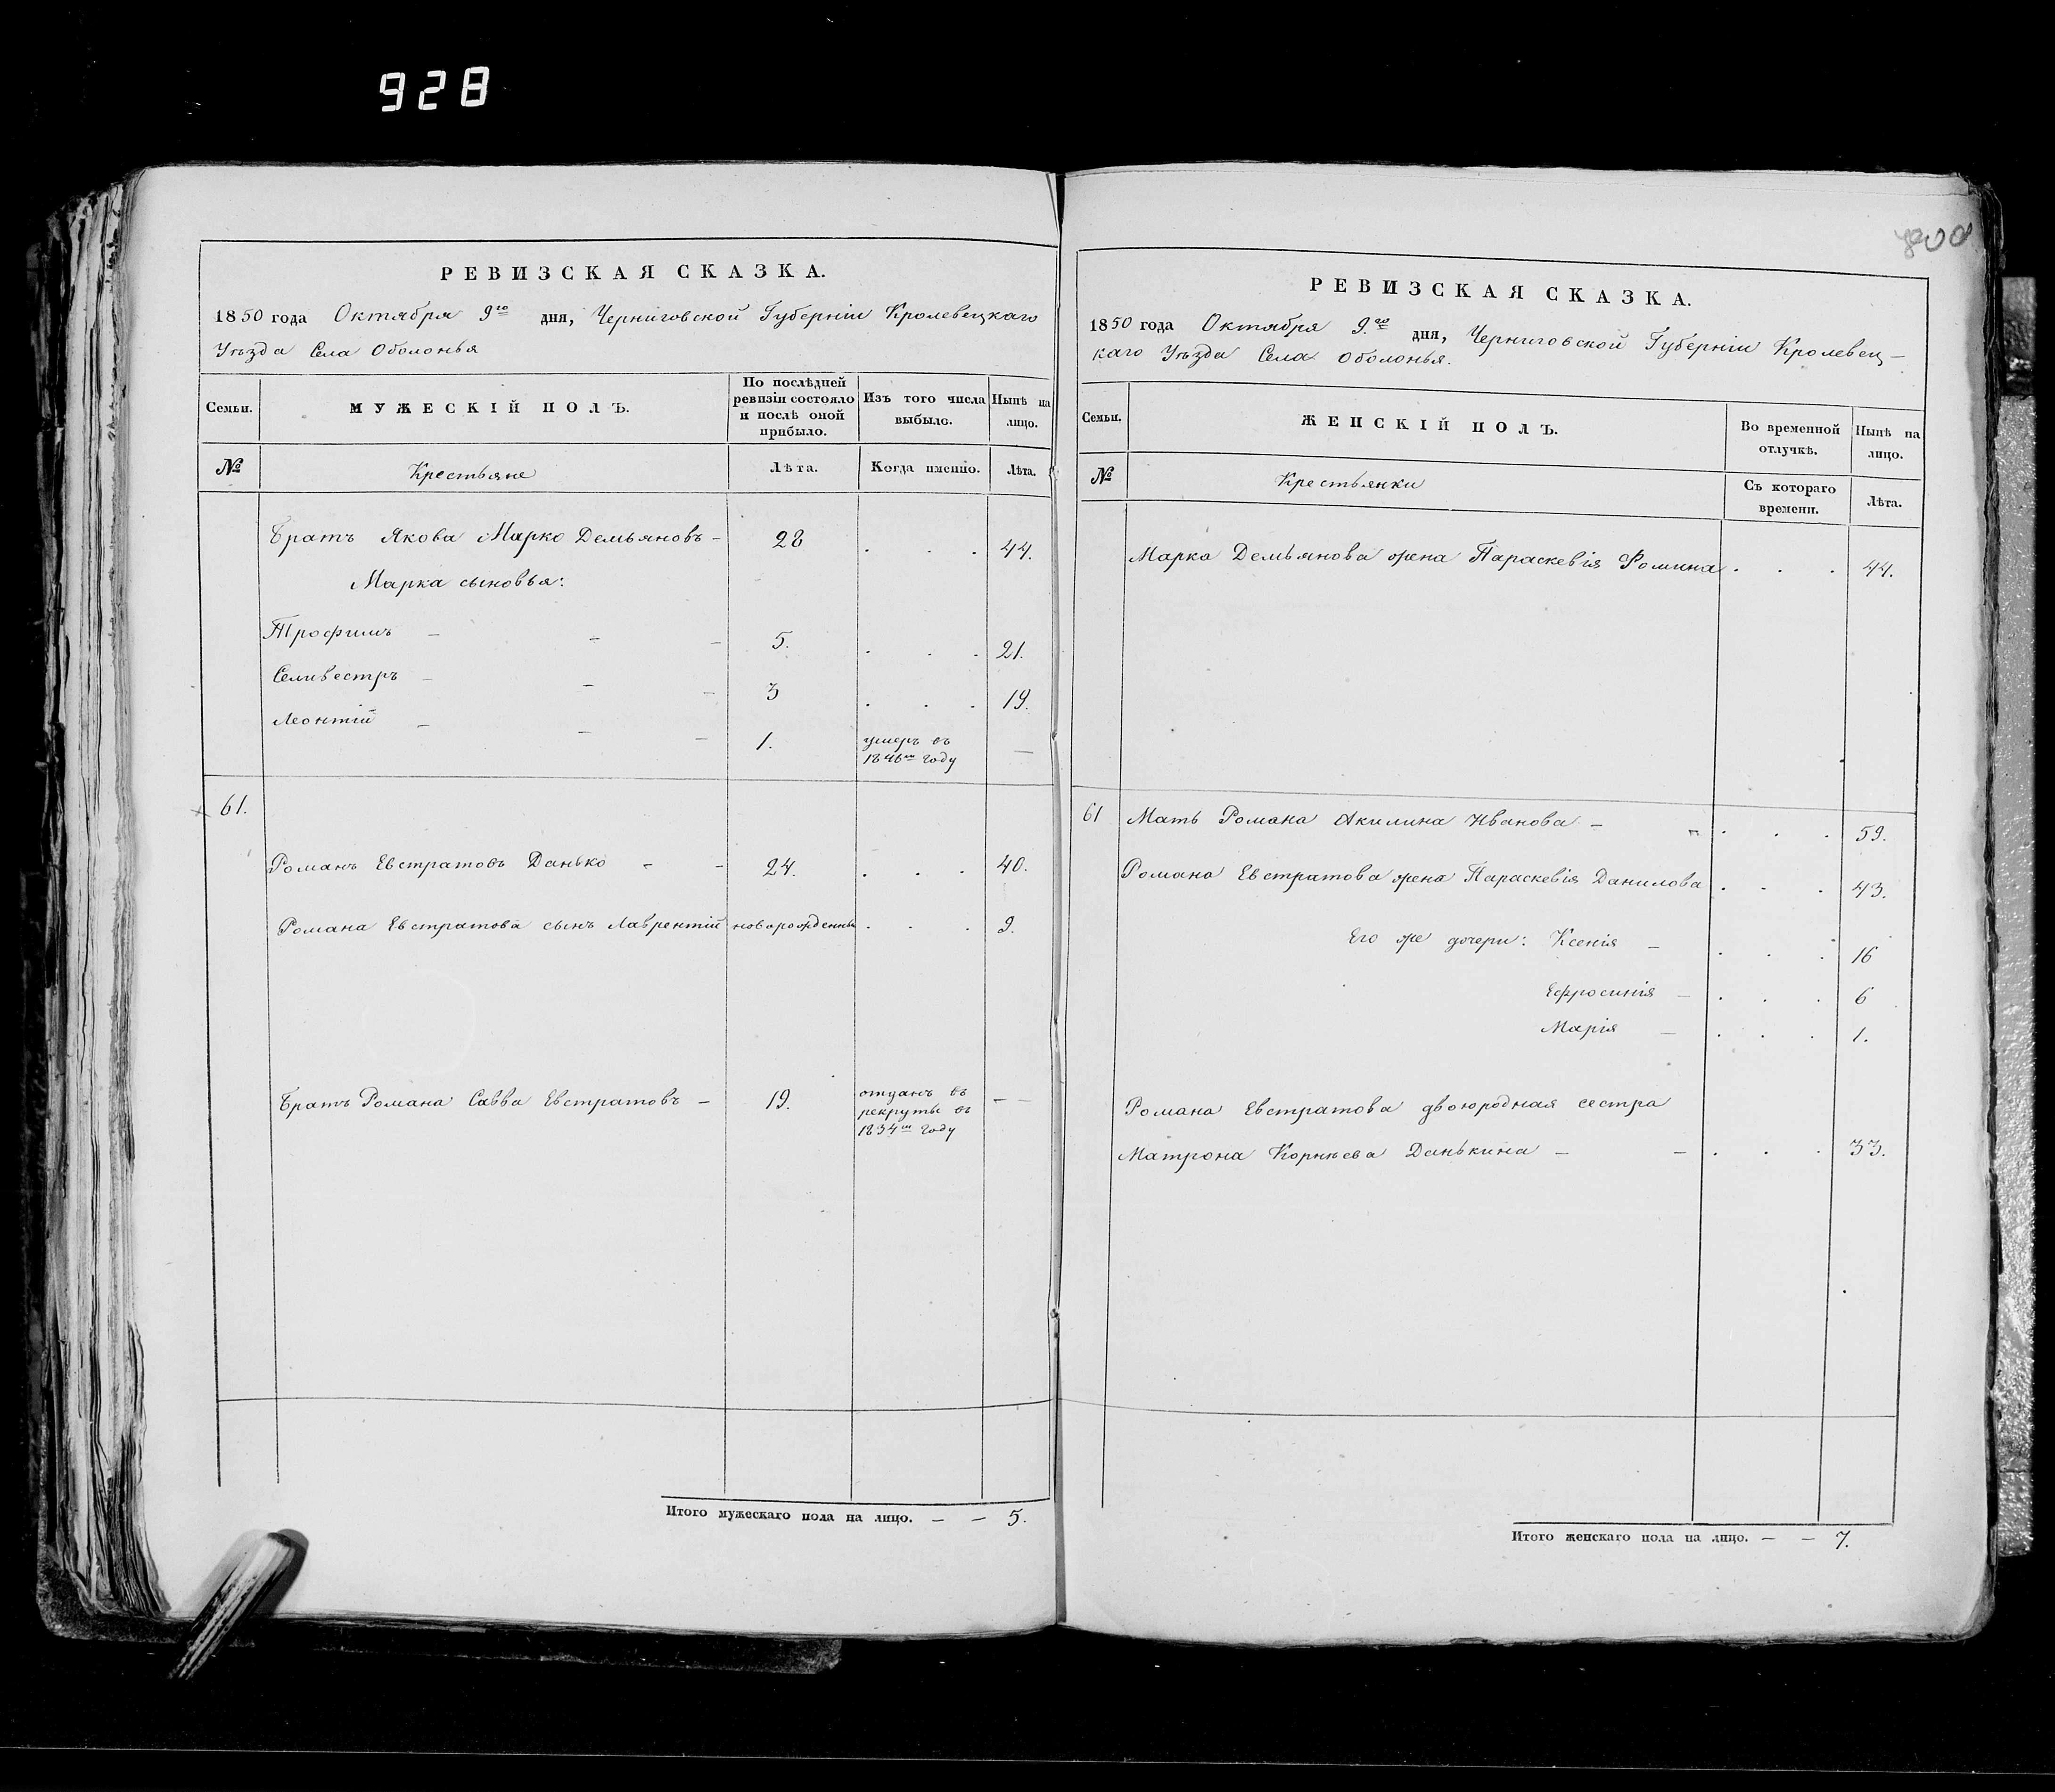 928
800
РЕВИЗСКАЯ СКАЗКА.
1850 года Октября 9го дня, Черниговской Губерніи Кролевецкаго
Уѣзда Села Оболонья
Семьи.
МУЖЕСКІЙ ПОЛЪ.
По послѣдней ревизіи состояло и послѣ оной прибыло.
Изъ того числа выбыло.
Нынѣ на лицо.
№
Крестьяне
Лѣта.
Когда именно.
Лѣта.
Братъ Якова Марко Демьяновъ - 28 . . . 44.
Марка сыновья:
Трофимъ - - - 5. . . . 21.
Селивестръ - - - 3 . . . 19.
Леонтій - - - 1. умеръ въ —
1846мъ году
61.
Романъ Евстратовъ Данько - - 24. . . . 40.
Романа Евстратова сынъ Лаврентій новорожденны . . . 9.
Братъ Романа Савва Евстратовъ - 19. отданъ въ — —
рекруты въ
1834мъ году
Итого мужескаго пола на лицо. — — 5.
РЕВИЗСКАЯ СКАЗКА.
1850 года Октября 9го дня, Черниговской Губерніи Кролевец-
каго Уѣзда Села Оболонья.
Семьи.
ЖЕНСКІЙ ПОЛЪ.
Во временной отлучкѣ.
Нынѣ на лицо.
№
Крестьянки
Съ котораго времени.
Лѣта.
Марка Демьянова жена Параскевія Фомина . . . 44.
61 Мать Романа Акилина Иванова - . . . 59.
Романа Евстратова жена Параскевія Данилова . . . 43.
Его же дочери: Ксенія - . . . 16
Ефросинія - . . . 6
Марія - . . . 1.
Романа Евстратова двоюродная сестра
Матрона Корнѣева Данькина - - . . . 33.
Итого женскаго пола на лицо. — — 7.